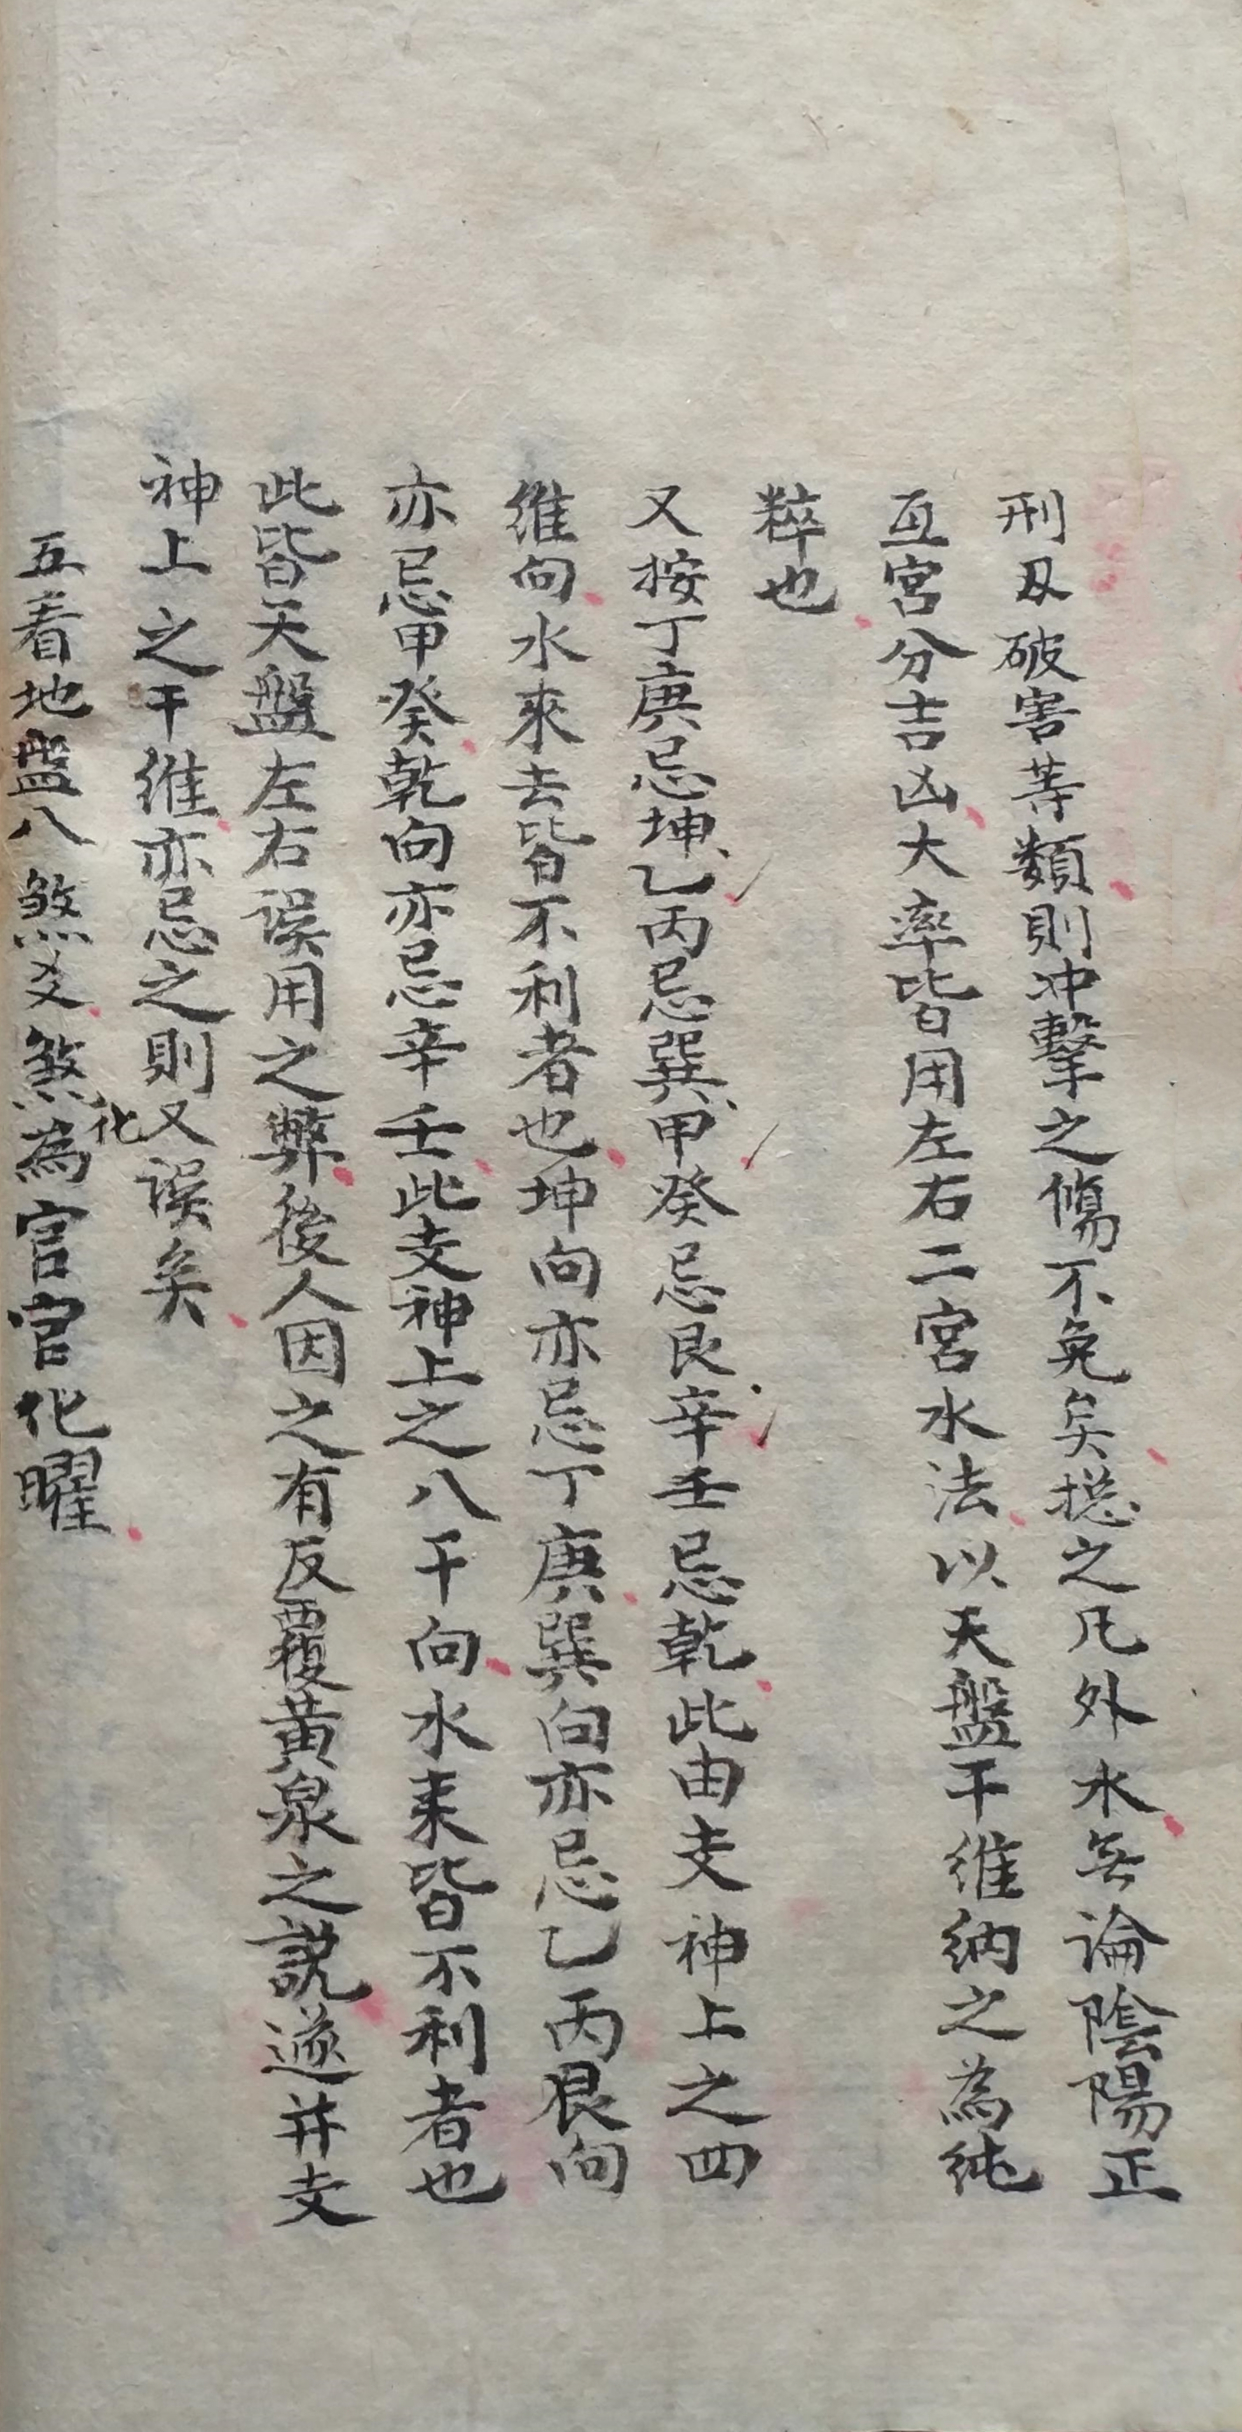 刑刄破害等類則冲擊之傷不免矣捴之凡外水無論陰陽正
互宮分吉凶大率皆用左右二宮水法以天盤干維納之為純
粹也
又按丁庚忌坤乙丙忌巽甲癸忌艮辛壬忌乾此由支神上之四
維向水來去皆不利者也坤向亦忌丁庚巽向亦忌乙丙艮向
亦忌甲癸乾向亦忌辛壬此支神上之八干向水来皆不利者也
此皆天盤左右误用之弊後人因之有反覆黄泉之説遂井支
神上之干維亦忌之則又误矣
五看地盤八煞爻煞化為官官化曜